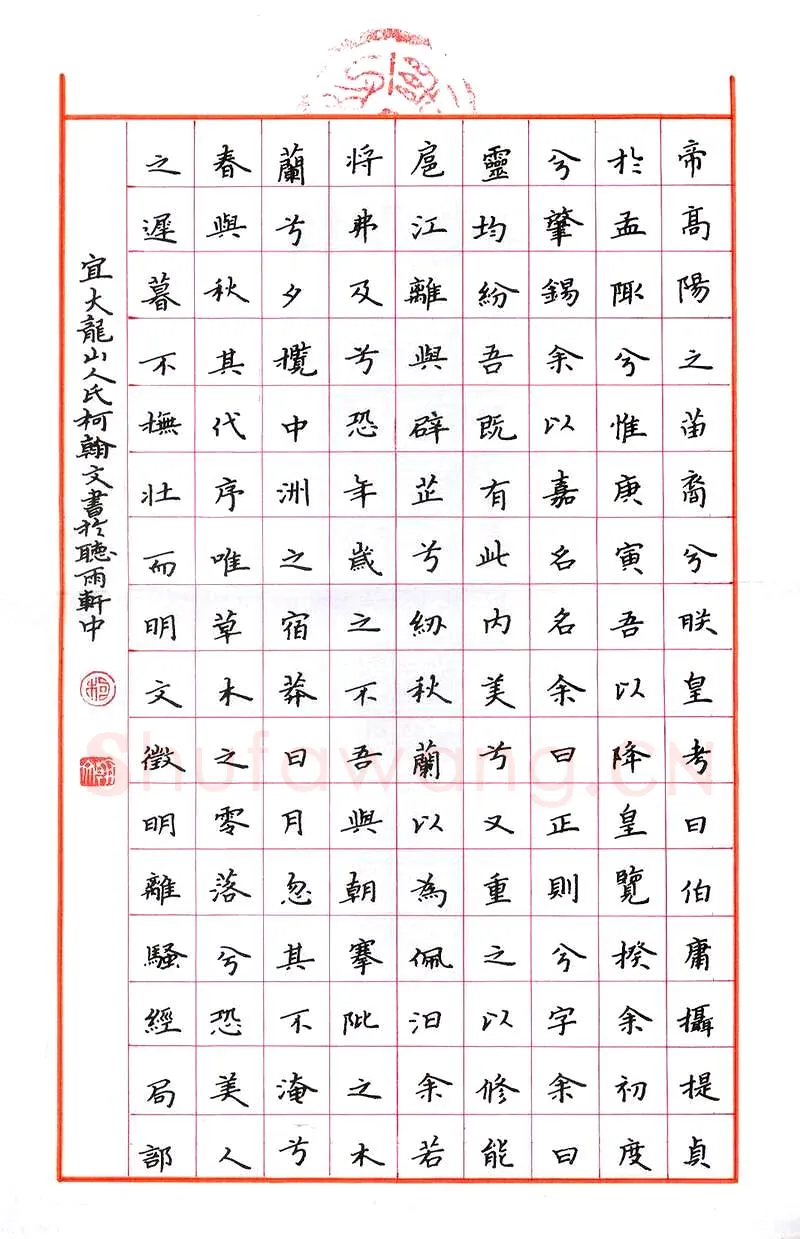 帝高陽之苗裔兮朕皇考曰伯庸攝提貞
於孟陬兮惟庚寅吾以降皇覽揆余初度
兮肇錫余以嘉名名余曰正則兮字余曰
靈均紛吾既有此內美兮又重之以修能
扈江離與辟芷兮紉秋蘭以為佩汩余若
將弗及兮恐年歲之不吾與朝搴阰之木
蘭兮夕攬中洲之宿莽日月忽其不淹兮
春與秋其代序唯草木之零落兮恐美人
之遲暮不撫壯而明文徵明離騷經局部
宜大龍山人氏柯翰文書於聽雨軒中
Shufawang.CN